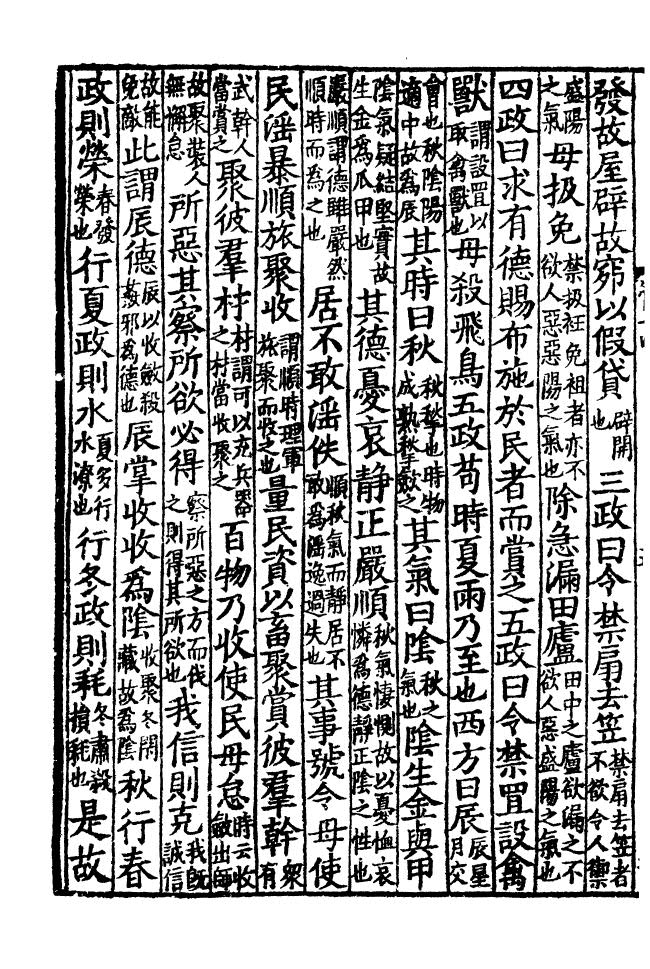 發故屋辟故窌以假貸辟開也三政曰令禁扇去笠禁扇去笠者不欲令人禦
盛陽之氣毋扱免禁扱衽免袒者亦不欲人惡惡陽之氣也除急漏田廬田中之廬欲漏之不欲人惡盛陽之氣也
四政曰求有德賜布施於民者而賞之五政曰令禁罝設禽
獸謂設罝以取禽獸也毋殺飛鳥五政苟時夏雨乃至也西方曰辰辰星月交
會也秋陰陽適中故爲辰其時曰秋秋揫也時物成熟揫歛之其氣曰陰秋之氣也陰生金與甲
陰氣疑結堅實故生金爲爪甲也其德憂哀靜正嚴順秋氣悽惻故以憂恤哀憐爲德靜正陰之性也
嚴順謂德雖嚴然順時而爲之也居不敢滛佚順秋氣而靜居不敢爲滛逸過失也其事號令毋使
民滛暴順旅聚收謂順時理軍旅聚而收之也量民資以畜聚賞彼羣幹眾有
武幹人當賞之聚彼羣材材謂可以充兵器之材當收聚之百物乃收使民毋怠時云收斂出師
故聚裝人無懈怠所惡其察所欲必得察所惡之方而伐之則得其所欲也我信則克我既誠信
故能免敵此謂辰德辰以收斂殺姦邪爲德也辰掌收收爲陰收聚冬閉藏故爲陰秋行春
政則榮春發榮也行夏政則水夏多行水潦也行冬政則耗冬肅殺損耗也是故